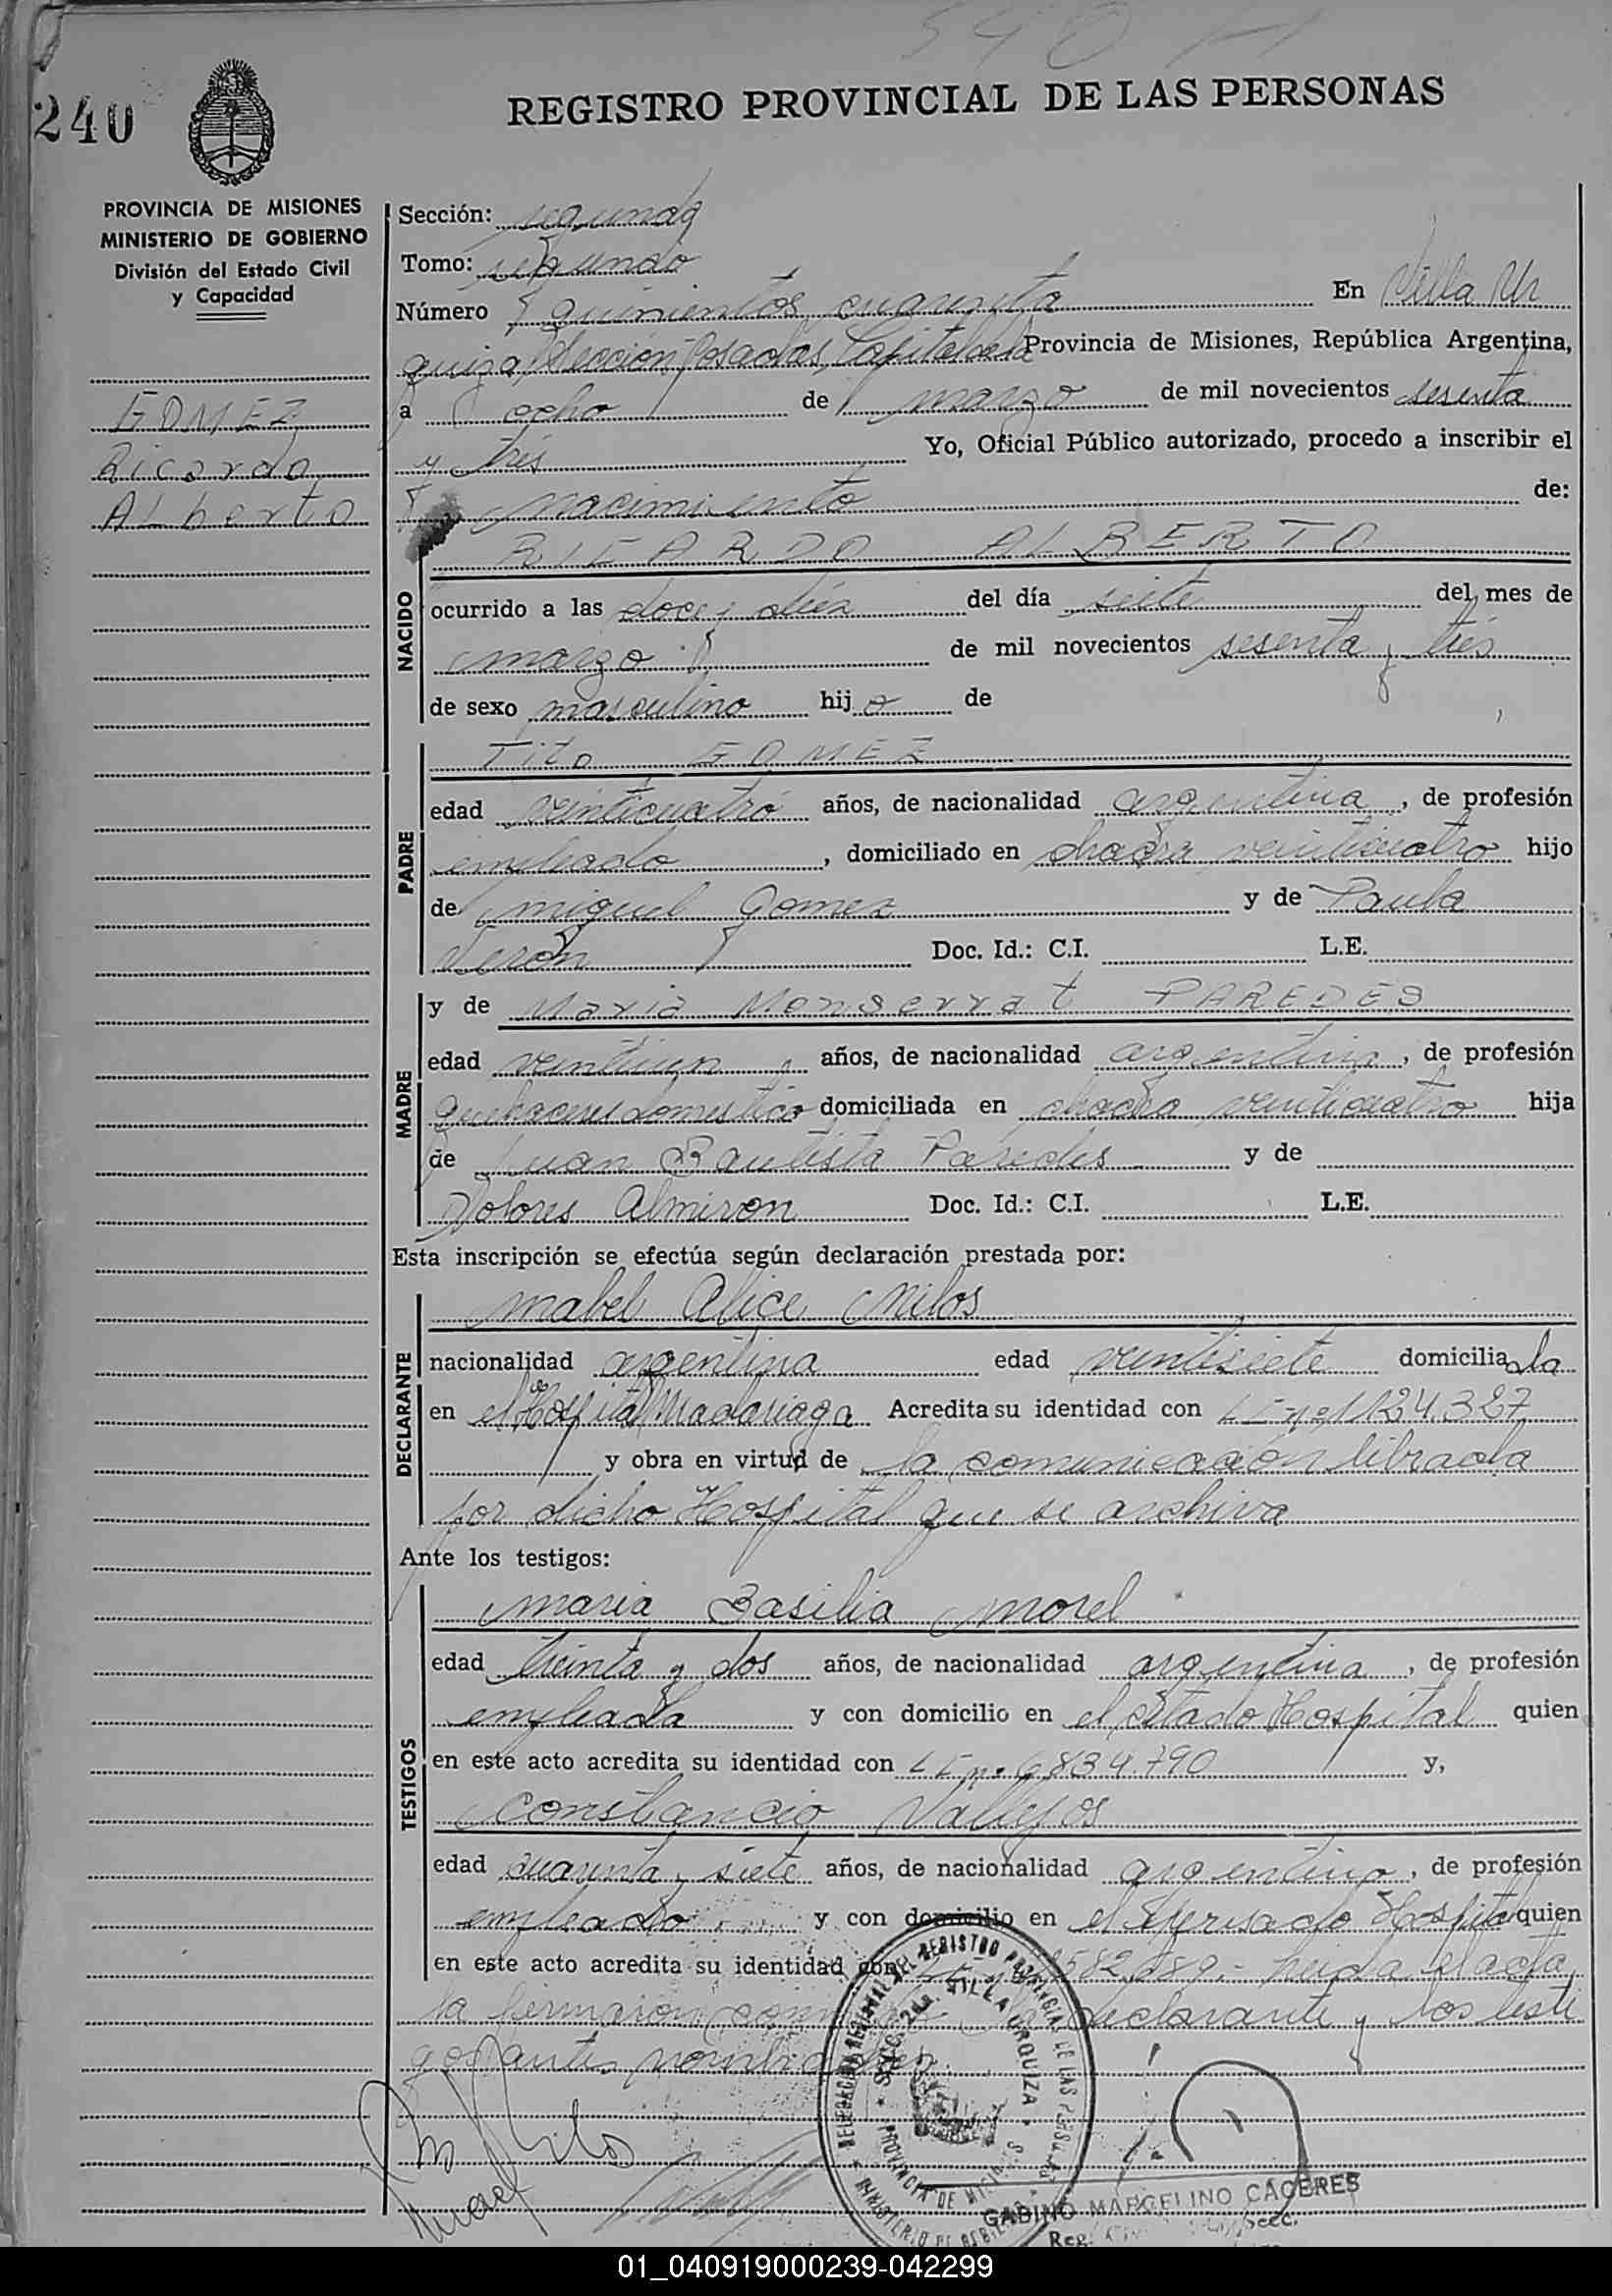 540
240
REGISTRO PROVINCIAL DE LAS PERSONAS
PROVINCIA DE MISIONES
MINISTERIO DE GOBIERNO
División del Estado Civil
y Capacidad
GOMEZ
Ricardo
ALberto
Sección: segunda
Tomo: segundo
Número quinientos cuarenta En Villa Ur
quiza Sección Posadas, Capital de la Provincia de Misiones, República Argentina,
a ocho de marzo de mil novecientos sesenta
y tres Yo, Oficial Público autorizado, procedo a inscribir el
nacimiento de:
NACIDO
RICARDO ALBERTO
ocurrido a las doce y diéz del día siete del mes de
marzo de mil novecientos sesenta y trés
de sexo masculino hijo de
PADRE
Tito GOMEZ
edad veinticuatro años, de nacionalidad argentina, de profesión
empleado, domiciliado en chacra veinticuatro hijo
de miguel Gomez y de Paula
Verón Doc. Id.: C.I. L.E.
MADRE
y de Maria Monserrat PAREDES
edad veintiun años, de nacionalidad argentina, de profesión
quehaceres domestico domiciliada en chacra veinticuatro hija
de Juan Bautista Paredes y de
Dolores Almiron Doc. Id.: C.I. L.E.
Esta inscripción se efectúa según declaración prestada por:
DECLARANTE
mabel Alice Milos
nacionalidad argentina edad veintisiete domiciliada
en el Hospital Madariaga Acredita su identidad con
y obra en virtud de la comunicación librada
por dicho Hospital que se archiva
Ante los testigos:
TESTIGOS
maria Basilia morel
edad treinta y dos años, de nacionalidad argentina, de profesión
empleada y con domicilio en el citado Hospital quien
en este acto acredita su identidad con L E nº 6834.790 y,
Constancio Vallejos
edad cuarenta y siete años, de nacionalidad argentino, de profesión
empleado y con domicilio en el expresado Hospital quien
en este acto acredita su identidad con leida el acta,
la firmaron declarante y los testi
gos antes nombrados.
DELEGACION REGISTRO PROVINCIAL DE LAS PERSONAS
SECC. 2da. VILLA URQUIZA
PROVINCIA DE MISIONES
MINISTERIO DE GOBIERNO
GABINO MARCELINO CACERES
Reg.
01_040919000239-042299